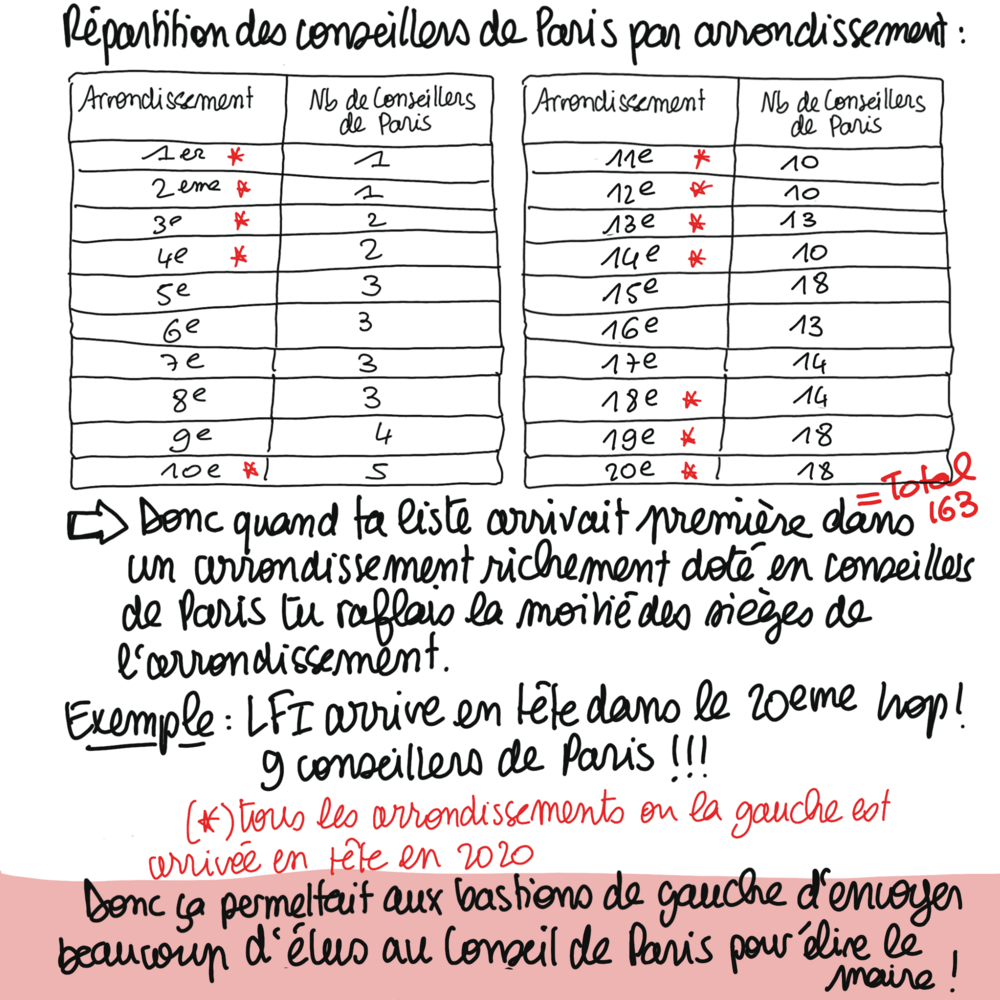 Répartition des conseillers de Paris par arrondissement :
Arrondissement Nb de Conseillers de Paris
1er * 1
2eme * 1
3e * 2
4e * 2
5e 3
6e 3
7e 3
8e 3
9e 4
10e * 5
Arrondissement Nb de Conseillers de Paris
11e * 10
12e * 10
13e * 13
14e * 10
15e 18
16e 13
17e 14
18e * 14
19e * 18
20e * 18
= Total
163
⇨ Donc quand ta liste arrivait première dans
un arrondissement richement doté en conseillers
de Paris tu raflais la moitié des sièges de
l'arrondissement.
Exemple : LFI arrive en tête dans le 20eme hop !
9 conseillers de Paris !!!
(*) tous les arrondissements ou la gauche est
arrivée en tête en 2020
Donc ça permettait aux bastions de gauche d'envoyer
beaucoup d'élus au Conseil de Paris pour élire le
maire !